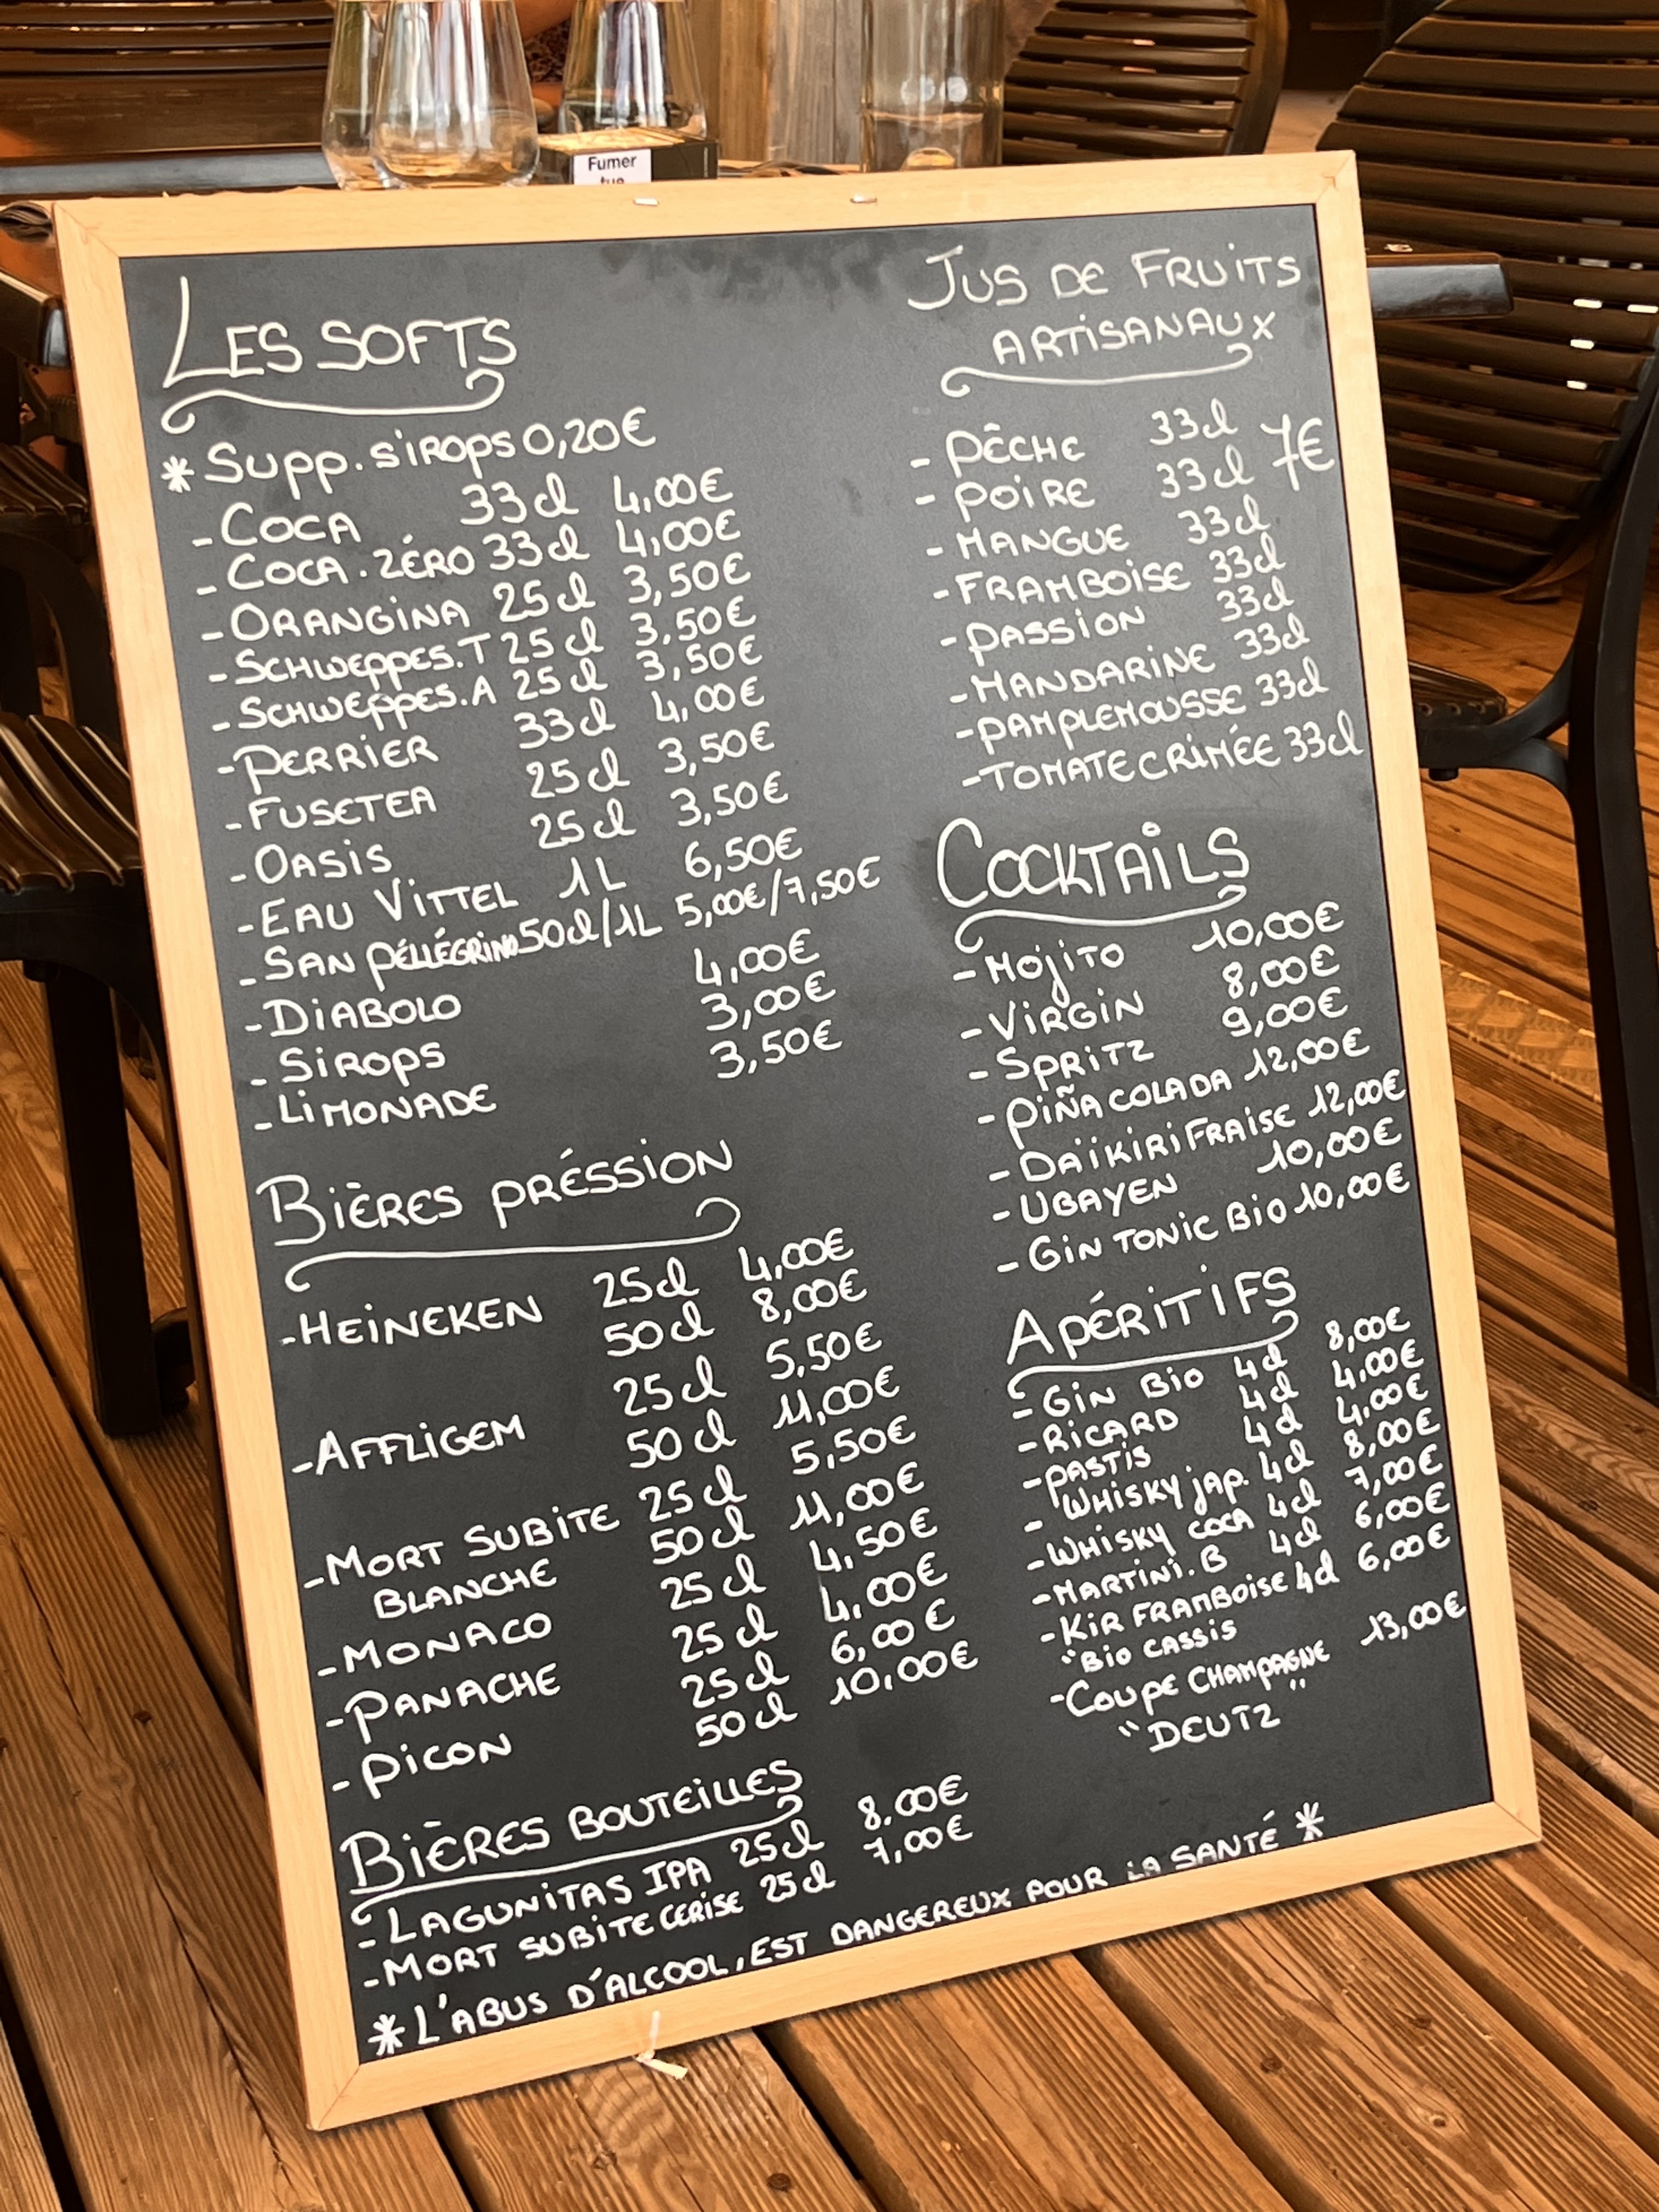 Fumer
tue
LES SOFTS
* SUPP. SIROPS 0,20€
- COCA 33cl 4,00€
- COCA. ZÉRO 33cl 4,00€
- ORANGINA 25cl 3,50€
- SCHWEPPES.T 25cl 3,50€
- SCHWEPPES.A 25cl 3,50€
- PERRIER 33cl 4,00€
- FUSETEA 25cl 3,50€
- OASIS 25cl 3,50€
- EAU VITTEL 1L 6,50€
- SAN PÉLLÉGRINO 50cl/1L 5,00€/7,50€
- DIABOLO 4,00€
- SIROPS 3,00€
- LIMONADE 3,50€
BIÈRES PRÉSSION
- HEINEKEN 25cl 4,00€
50cl 8,00€
- AFFLIGEM 25cl 5,50€
50cl 11,00€
- MORT SUBITE 25cl 5,50€
BLANCHE 50cl 11,00€
- MONACO 25cl 4,50€
- PANACHE 25cl 4,00€
- PICON 25cl 6,00€
50cl 10,00€
BIÈRES BOUTEILLES
- LAGUNITAS IPA 25cl 8.00€
- MORT SUBITE CERISE 25cl 7,00€
JUS DE FRUITS
ARTISANAUX
- PÊCHE 33cl
- POIRE 33cl 7€
- MANGUE 33cl
- FRAMBOISE 33cl
- PASSION 33cl
- MANDARINE 33cl
- PAMPLEMOUSSE 33cl
- TOMATE CRIMÉE 33cl
COCKTAILS
- MOJITO 10,00€
- VIRGIN 8,00€
- SPRITZ 9,00€
- PIÑA COLADA 12,00€
- DAÏKIRI FRAISE 12,00€
- UBAYEN 10,00€
- GIN TONIC BIO 10,00€
APÉRITIFS
- GIN BIO 4cl 8,00€
- RICARD 4cl 4,00€
- PASTIS 4cl 4,00€
- WHISKY JAP. 4cl 8,00€
- WHISKY COCA 4cl 7,00€
- MARTINI.B 4cl 6,00€
- KIR FRAMBOISE 4cl 6,00€
"BIO CASSIS
- COUPE CHAMPAGNE 13,00€
"DEUTZ"
* L'ABUS D'ALCOOL, EST DANGEREUX POUR LA SANTÉ *